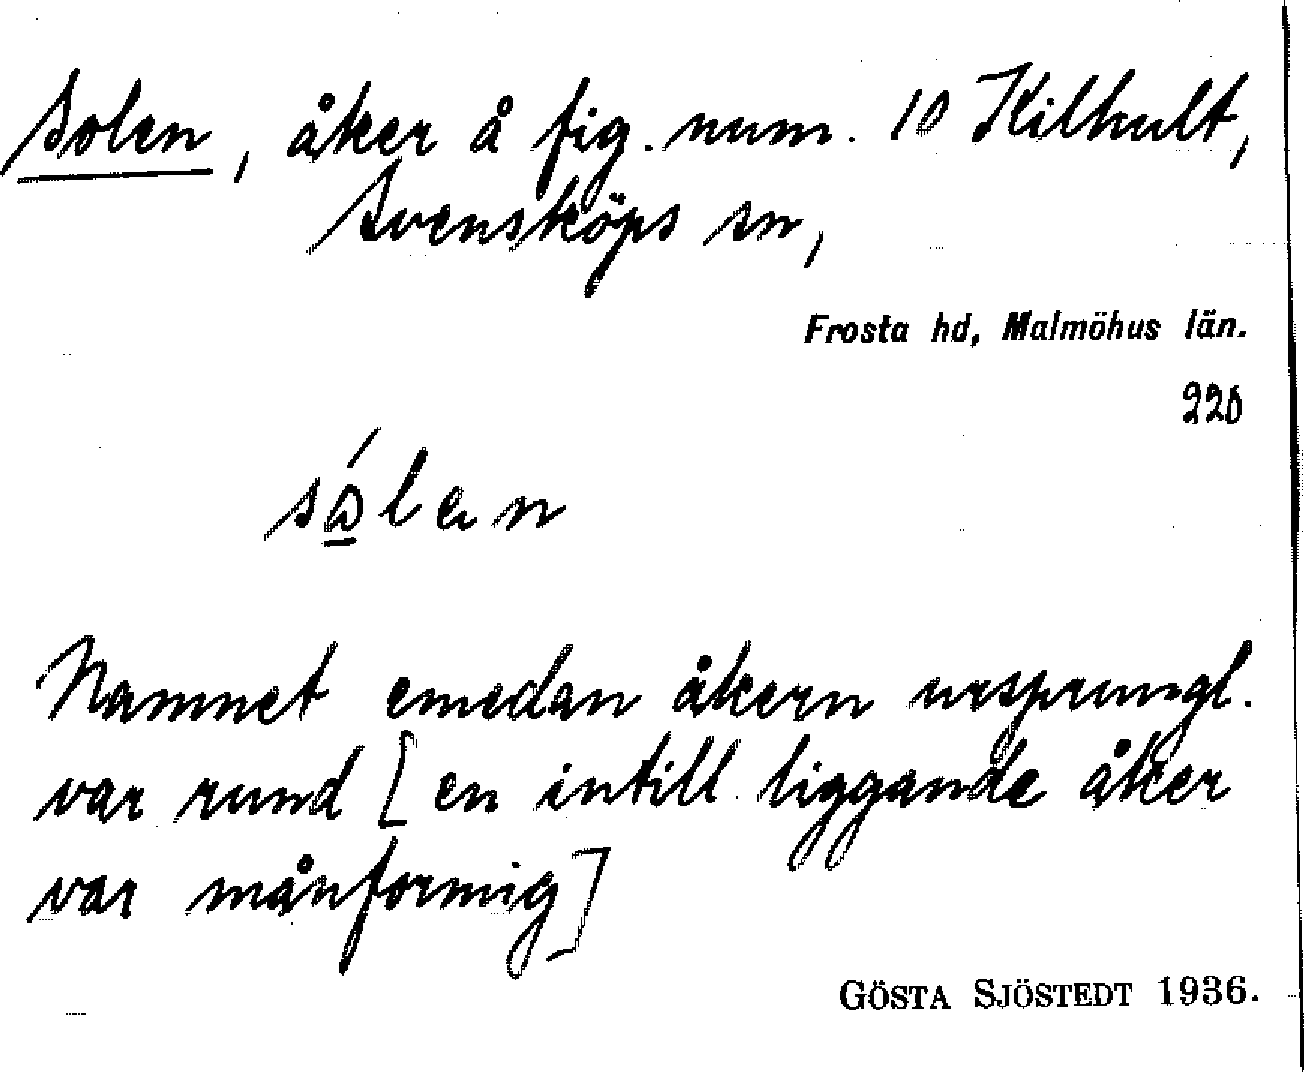 Solen, åker å fig. num. 10 Kilhult,
Svensköps sn,
Frosta hd, Malmöhus län.
220
Namnet emedan åkern ursprungl.
var rund [en intill liggande åker
var månformig]
GÖSTA SJÖSTEDT 1936.